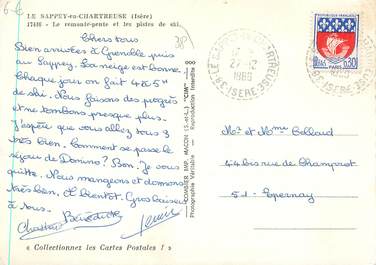 6-€
LE SAPPEY-en-CHARTREUSE (Isère)
17416 - Le remonte-pente et les pistes de ski.
Chers tous
Bien arrivées à Grenoble puis
au Sappey. La neige est bonne.
Chaque jour on fait 4 à 5h
de ski. Nous faisons des progrès
et ne tombons presque plus.
J'espère que vous allez tous 3
très bien. Comment se passe le
séjour de Domino? Bon. Je vous
quitte. Nous mangeons et dormons
très bien. A bientôt. Gros baisers
à tous.
Bénédicte
« Collectionnez les Cartes Postales ! »
COMBIER IMP. MACON (S.-et-L.) "CIM"
Photographie Véritable - Reproduction Interdite
27-12
1968
ISÈRE
0,30
PARIS
Mr et Mme Collaud
44bis rue de Champrot
51 - Epernay